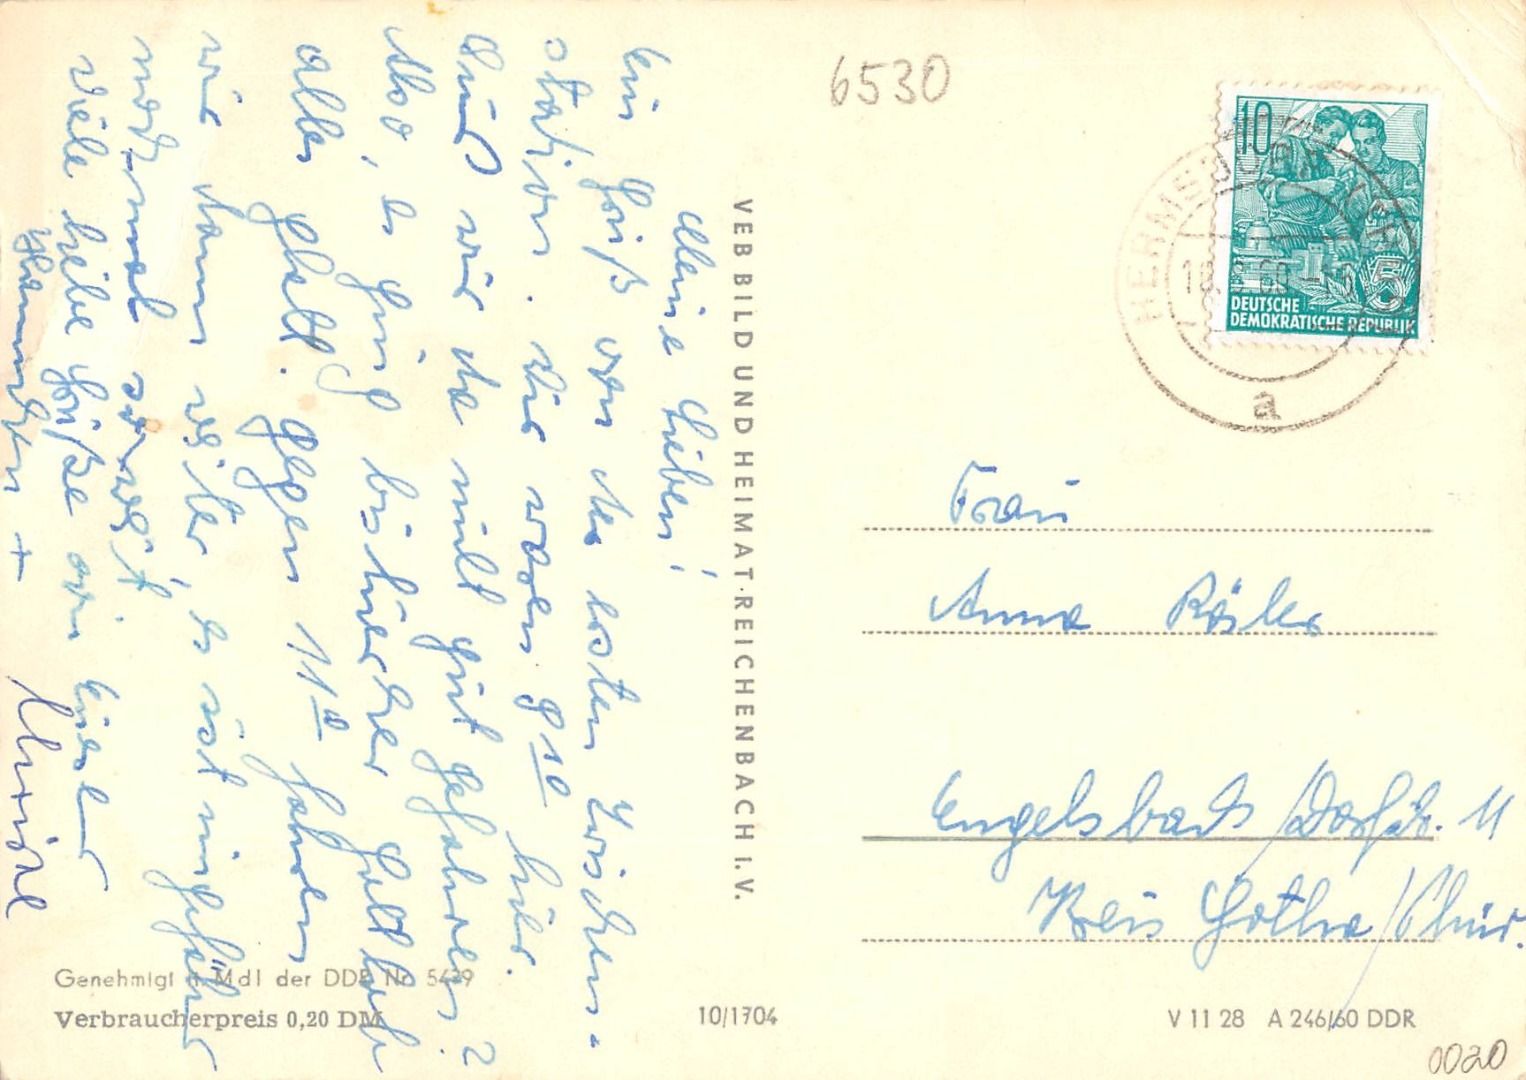 Meine Lieben!
Ein Gruß von der ersten Zwischen-
station. Wir waren 9 10 hier.
Sind wir da nicht gut gefahren?
Also, es ging bisher Gott lob
alles glatt. Gegen 11 00 fahren
wir dann weiter, es ist ungefähr
noch mal so weit.
Viele liebe Grüße von Eurer
Hannchen +
VEB BILD UND HEIMAT · REICHENBACH I. V.
6530
10
5
DEUTSCHE
DEMOKRATISCHE REPUBLIK
HERMSDORF
a
Frau
Anna Rösler
Engelsbach / Dorfstr. 11
Kreis Gotha / Thür.
Genehmigt MdI der DDR Nr. 5439
Verbraucherpreis 0,20 DM
10/1704
V 11 28 A 246/60 DDR
0020